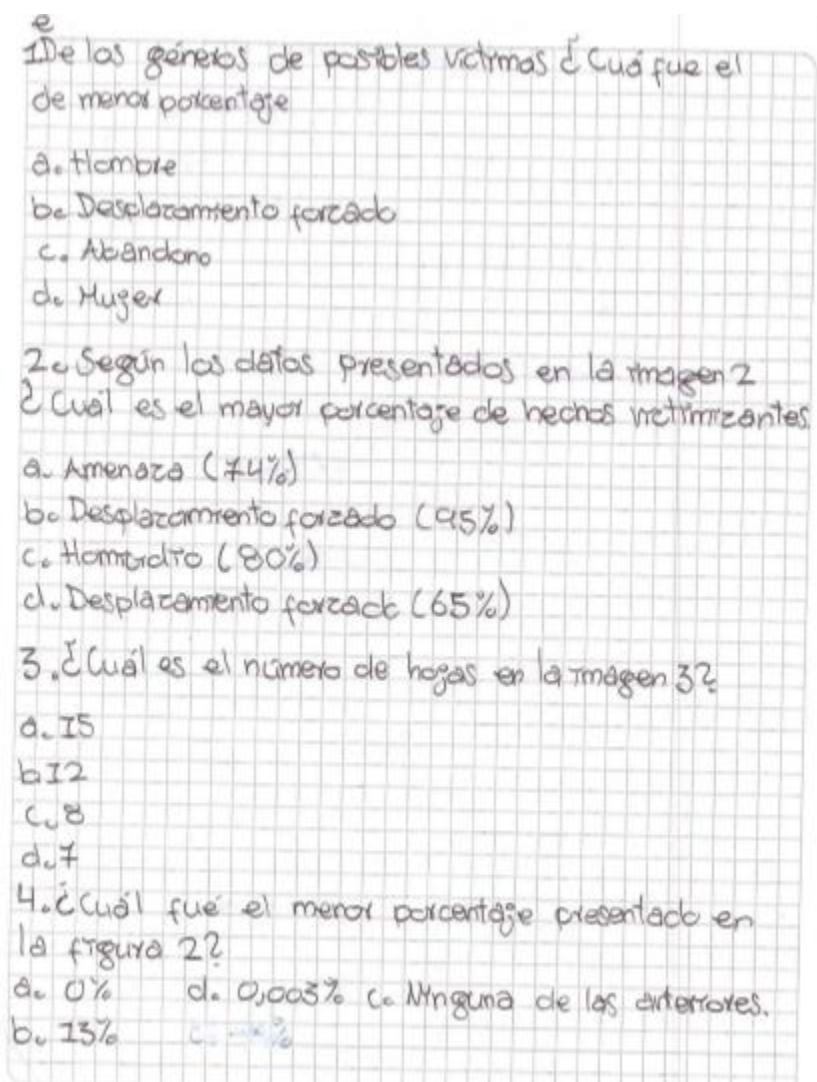 e
1De los géneros de posibles victimas ¿Cuá fue el
de menor porcentaje
a. Hombre
b. Desplazamiento forzado
c. Abandono
d. Muger
2. Según los datos presentados en la imagen 2
¿Cuál es el mayor porcentaje de hechos victimizantes.
a. Amenaza (74%)
b. Desplazamiento forzado (95%)
c. Homicidio (80%)
d. Desplazamiento forzado (65%)
3. ¿Cuál es el número de hogas en la imagen 3?
a. 15
b 12
c. 8
d. 7
4. ¿Cuál fué el menor porcentaje presentado en
la figura 2?
a. 0% d. 0,003% c. Ninguna de las anteriores.
b. 13%